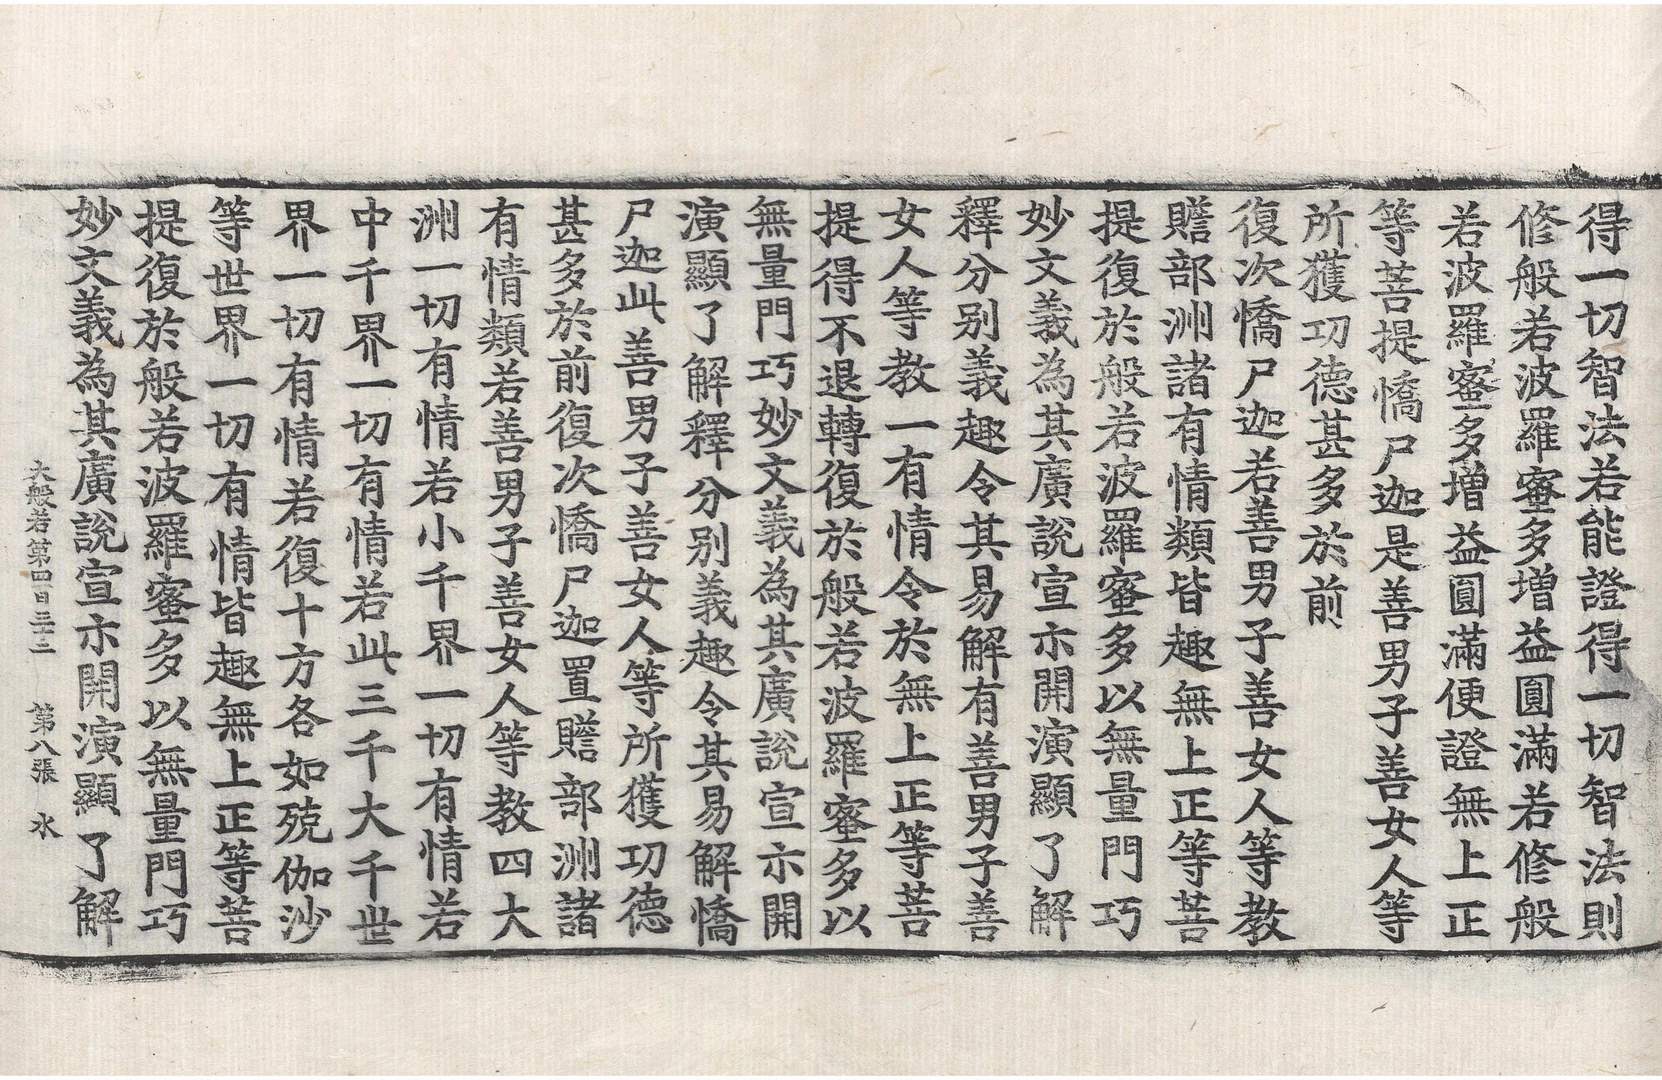 得一切智法若能證得一切智法則
修般若波羅蜜多增益圓滿若修般
若波羅蜜多增益圓滿便證無上正
等菩提憍尸迦是善男子善女人等
所獲功德甚多於前
復次憍尸迦若善男子善女人等教
贍部洲諸有情類皆趣無上正等菩
提復於般若波羅蜜多以無量門巧
妙文義為其廣說宣示開演顯了解
釋分別義趣令其易解有善男子善
女人等教一有情令於無上正等菩
提得不退轉復於般若波羅蜜多以
無量門巧妙文義為其廣說宣示開
演顯了解釋分別義趣令其易解憍
尸迦此善男子善女人等所獲功德
甚多於前復次憍尸迦置贍部洲諸
有情類若善男子善女人等教四大
洲一切有情若小千界一切有情若
中千界一切有情若此三千大千世
界一切有情若復十方各如殑伽沙
等世界一切有情皆趣無上正等菩
提復於般若波羅蜜多以無量門巧
妙文義為其廣說宣示開演顯了解
大般若第四百三十二 第八張 水